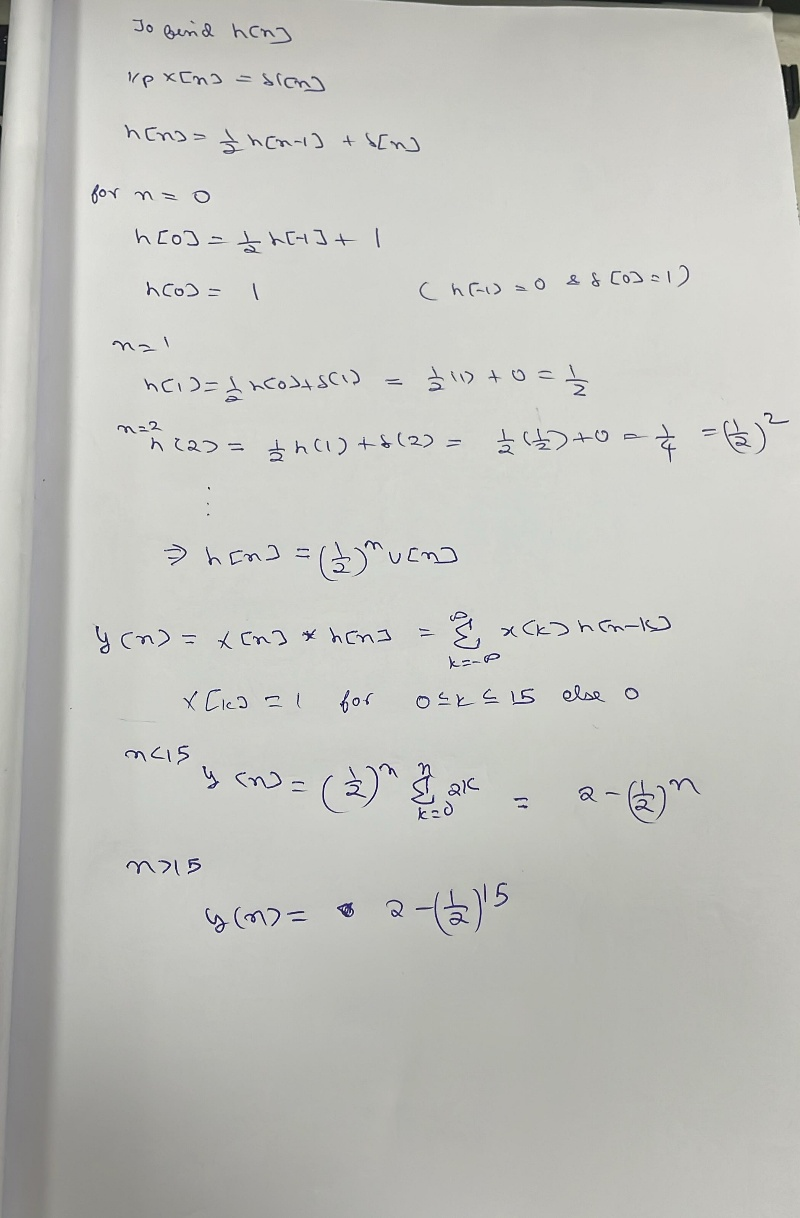 To find h[n]
i/p x[n] = δ[n]
h[n] = 1/2 h[n-1] + δ[n]
for n = 0
h[0] = 1/2 h[-1] + 1
h[0] = 1 ( h[-1] = 0 & δ[0] = 1)
n=1
h(1) = 1/2 h[0] + δ(1) = 1/2 (1) + 0 = 1/2
n=2
h(2) = 1/2 h(1) + δ(2) = 1/2 (1/2) + 0 = 1/4 = (1/2)^2
⋮
⇒ h[n] = (1/2)^n u[n]
y(n) = x[n] * h[n] = Σ_{k=-∞}^{∞} x(k) h(n-k)
x[k] = 1 for 0 ≤ k ≤ 15 else 0
n<15
y(n) = (1/2)^n Σ_{k=0}^{n} 2^k = 2 - (1/2)^n
n>15
y(n) = 2 - (1/2)^15